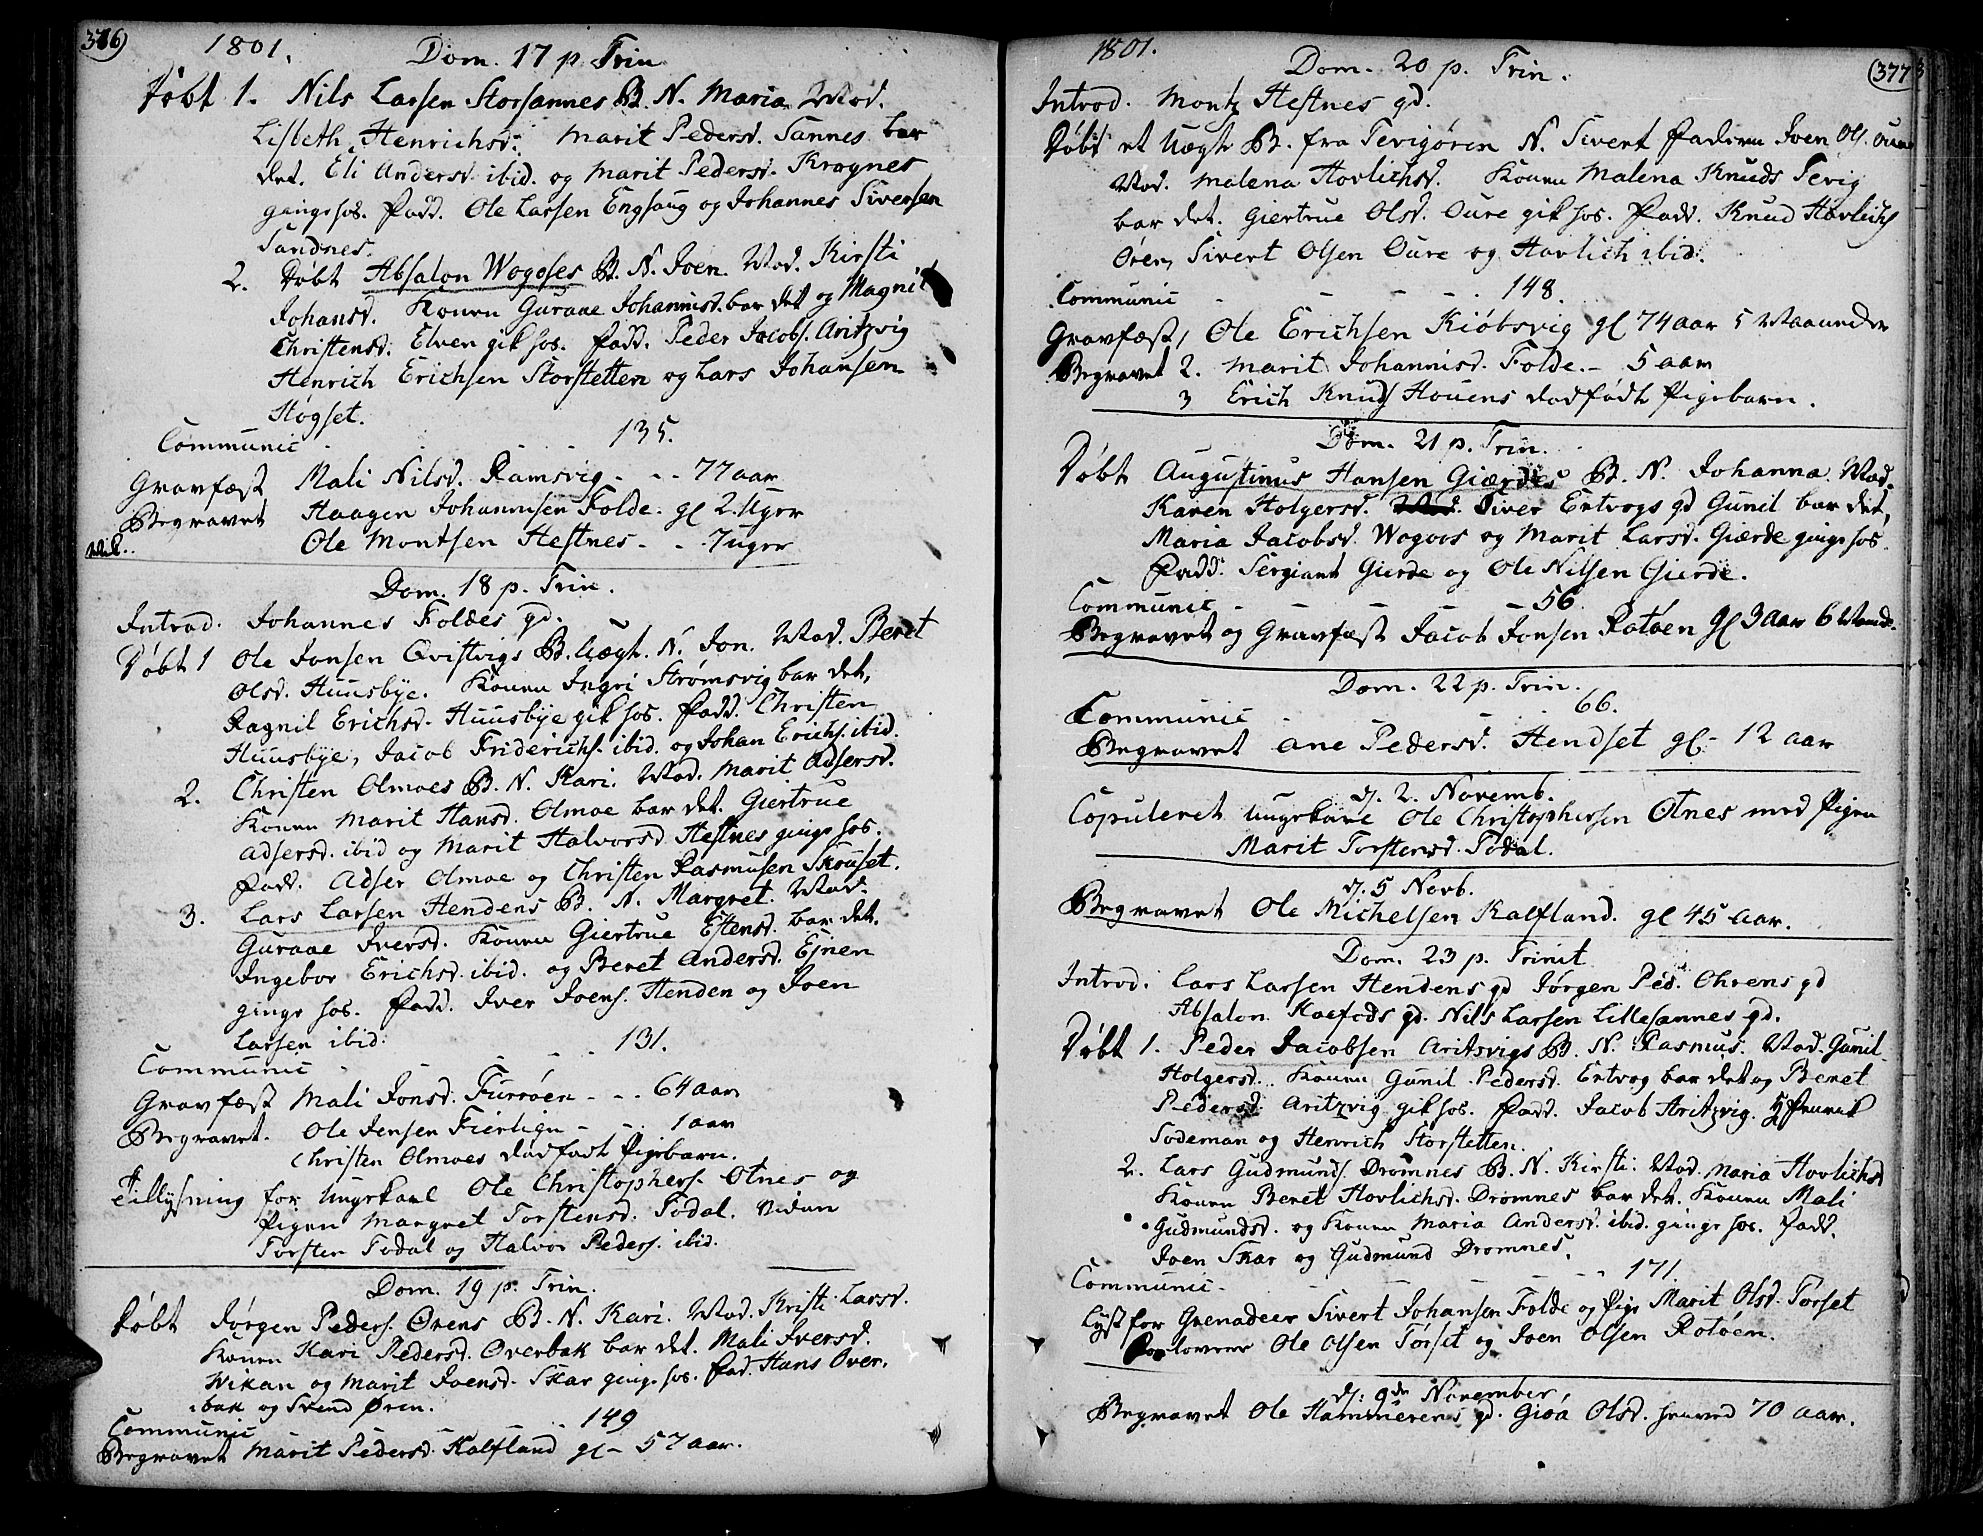 376)
1801.
Dom. 17 p. Trin
Døbt 1. Nils Larsen Storsannes B. N. Maria Mod.
Lisbeth Henrichsd. Marit Pedersd. Sannes bar
det. Eli Andersd. ibid. og Marit Pedersd. Krognes
ginge hos. Fadd. Ole Larsen Engsaug og Johannes Siversen
Sandnes.
2. Døbt Absalon Wogoses B. N. Joen. Mod. Kirsti
Johansd. Konen Guraae Johannisd. bar det og Magnil
Christensd. Elven gik hos. Fadd. Peder Jacobs. Aritzvig
Henrich Erichsen Storstetten og Lars Johansen
Støgset.
Communic - - - 135.
Gravfæst Mali Nilsd. Ramsvig - - - 77 aar
Begravet Haagen Johannisen Folde. gl 2. Uger
Ole Montsen Hestnes - - 7 uger
Dom. 18 p. Trin.
Introd. Johannes Foldes qd.
Døbt 1 Ole Jonsen Qvistvigs B. Uægt. N. Jon. Mod. Beret
Olsd. Huusbye. Konen Ingri Strømsvig bar det,
Ragnil Erichsd. Huusbye gik hos. Fadd. Christen
Huusbye, Jacob Friderichs. ibid. og Johan Erichs. ibid.
2. Christen Olmoes B. N. Kari. Mod. Marit Adsersd.
Konen Marit Hansd. Olmoe bar det. Giertrue
Adsersd. ibid og Marit Halvorsd Hestnes ginge hos.
Fadd. Adser Olmoe og Christen Rasmusen Skouset.
3. Lars Larsen Hendens B. N. Margret. Mod.
Guraae Iversd. Konen Giertrue Estensd. bar det.
Ingebor Erichsd. ibid. og Beret Andersd. Ejnen
ginge hos. Fadd. Iver Joens. Henden og Joen
Larsen ibid.
Communic - - - 131.
Gravfæst Mali Jonsd. Furrøen - - - 64 aar
Begravet. Ole Jensen Fierlign - - 1 aar
Christen Olmoes dødfødt Pigebarn.
Tillysning for Ungekarl Ole Christophers. Otnes og
Pigen Margret Torstensd. Todal. Viden
Torsten Todal og Halvor Peders. ibid.
Dom. 19 p. Trin.
Døbt Jørgen Peders. Ørens B. N. Kari. Mod. Kristi Larsd.
Konen Kari Pedersd. Overbak bar det. Mali Iversd.
Wikan og Marit Joensd. Skar ginge hos. Fad. Hans Over,
bak og Svend Øren.
Communic - - - 149
Begravet Marit Pedersd. Kalfland gl - 57 aar.
1801.
(377
Dom. 20 p. Trin.
Introd. Montz Hestnes qd.
Døbt et Uægte B. fra Tevigøren N. Sivert Faderen Joen Ols. Oure
Mod. Malena Hovlichsd. Konen Malena Knuds Tevig
bar det. Giertrue Olsd. Oure gik hos. Fadd. Knud Hovlichs
Øren, Sivert Olsen Oure og Hovlich ibid.
Communic - - - - 148.
Gravfæst, Ole Erichsen Kiøbsvig gl 74 aar 5 Maaneder
Begravet 2. Marit Johannisd. Folde. - 5 aar
3 Erich Knuds Houens dødfødt Pigebarn.
Dom. 21 p. Trin.
Døbt Augustinus Hansen Giærdes B. N. Johanna. Mod.
Karen Holgersd. Siver Ertvogs qd Gunil bar det,
Maria Jacobsd. Wogoos og Marit Larsd. Giærde ginge hos.
Fadd. Sergiant Gierde og Ole Nilsen Gierde.
Communic - - - - 56
Begravet og Gravfæst Jacob Jonsen Rotøen gl 3 aar 6 Maned.
Dom. 22 p. Trin.
Communic - - - 66.
Begravet Ane Pedersd. Hendset gl - 12 aar
d. 2. Novemb.
Copuleret Ungekarl Ole Christophersen Otnes med Pigen
Marit Torstensd. Todal.
d. 5 Novb.
Begravet Ole Michelsen Kalfland. gl 45 aar.
Dom. 23 p. Trinit
Introd. Lars Larsen Hendens qd Jørgen Ped. Ohrens qd
Absalon Koefods qd. Nils Larsen Lillesannes qd.
Døbt 1. Peder Jacobsen Aritsvigs B. N. Rasmus. Mod. Gunil
Holgersd. Konen Gunil Pedersd. Ertvog bar det og Beret
Pedersd. Aritzvig gik hos. Fadd. Jacob Aritzvig.
Sodeman og Henrich Storstetten.
2. Lars Gudmunds Dromnes B. N. Kirsti. Mod. Maria Hovlichsd
Konen Beret Hovlichsd. Dromnes bar det. Konen Mali
Gudmundsd. og Konen Maria Andersd. ibid. ginge hos. Fadd.
Joen Skar og Gudmund Dromnes.
Communic - - - - 171.
Lyst for Grenadeer Sivert Johansen Folde og Pige Marit Olsd. Torset
Forlovere Ole Olsen Torset og Joen Olsen Rotøen.
d. 9de November,
Begravet Ole Hammerens qd. Gioa Olsd. henved 70 aar.